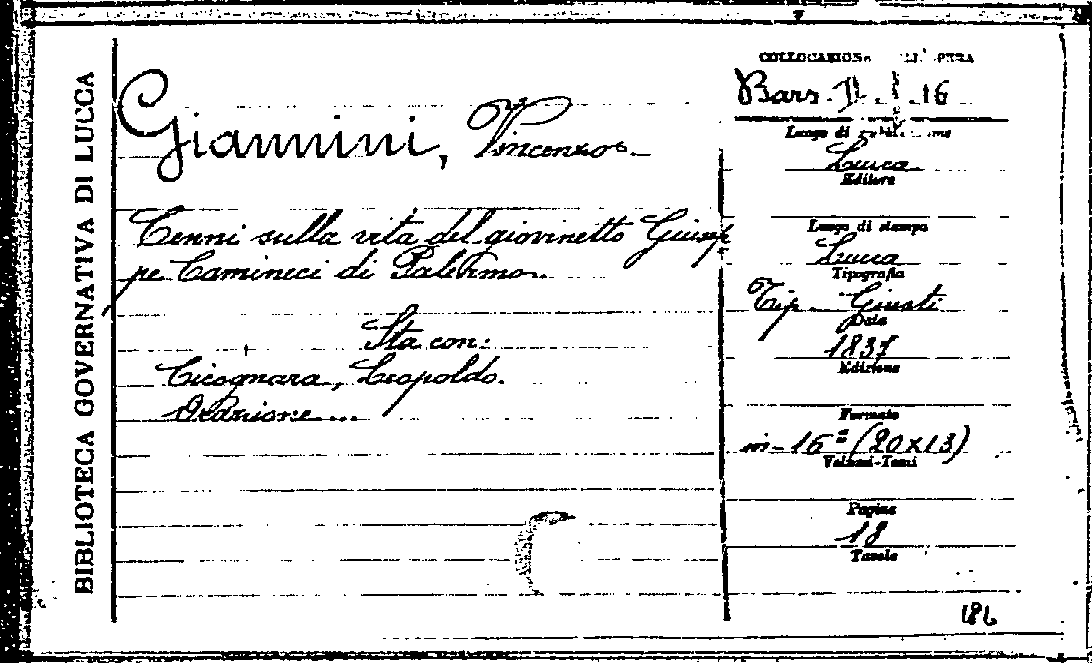 BIBLIOTECA GOVERNATIVA DI LUCCA
Giannini, Vincenzo.
Cenni sulla vita del giovinetto Giusep
pe Camineci di Palermo.
Sta con:
Cicognara, Leopoldo.
Orazione ...
COLLOCAZIONE
Bars. 16
Luogo di
Lucca
Editore
Luogo di stampa
Lucca
Tipografia
Tip. Giusti
Data
1837
Edizione
Formato
in-16° (20x13)
Volumi-Tomi
Pagine
18
Tavole